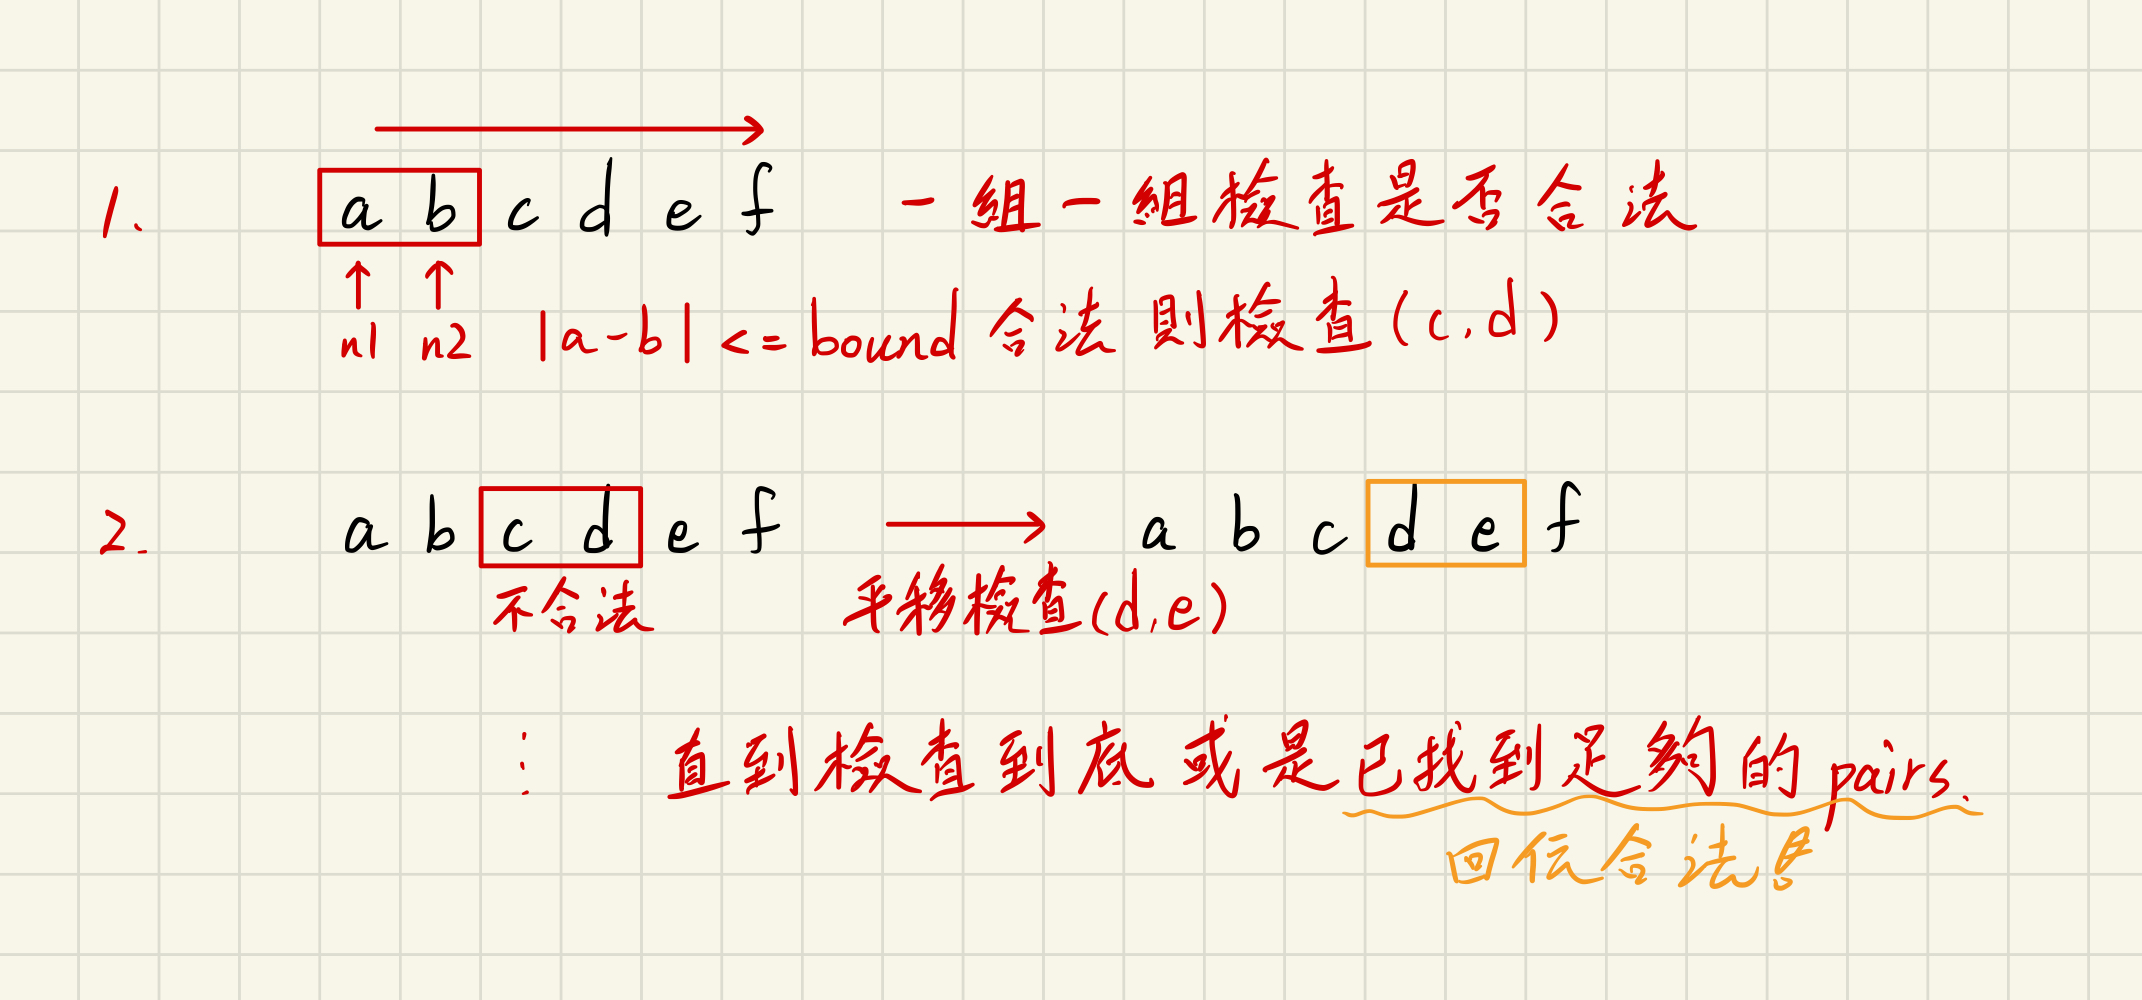 1. a b c d e f 一組一組檢查是否合法
n1 n2 |a-b| <= bound 合法 則檢查(c,d)
2. a b c d e f a b c d e f
不合法 平移檢查(d,e)
⋮ 直到檢查到底 或是已找到足夠的 pairs.
回伝合法!